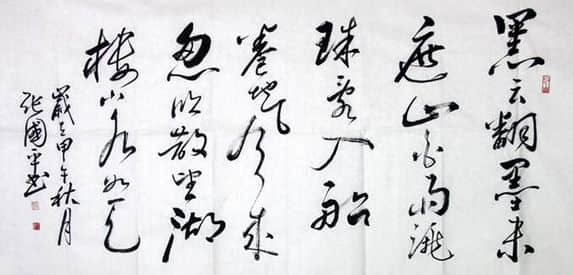 黑云翻墨未
遮山白雨跳
珠乱入船
卷地风来
忽吹散望湖
楼下水如天
嵗在甲午秋月
张國平书